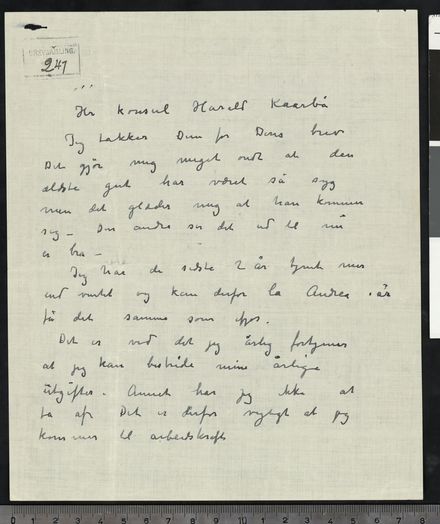 BREVSAMLING
241
Hr Konsul Harald Kaarbö
Jeg takker Dem for Deres brev
Det gjör mig meget ondt at den
ældste gut har været så syg
men det glæder mig at han kommer
sig – Den andre ser det ud til nu
er bra –
Jeg har de sidste 2 år tjent mer
end ventet og kan derfor la Andrea i år
få det samme som ifjor.
Det er ved det jeg årlig fortjener
at jeg kan bestride mine årlige
utgifter. Annet har jeg ikke at
ta af. Det er derfor vigtigt at jeg
kommer til arbeidskraft